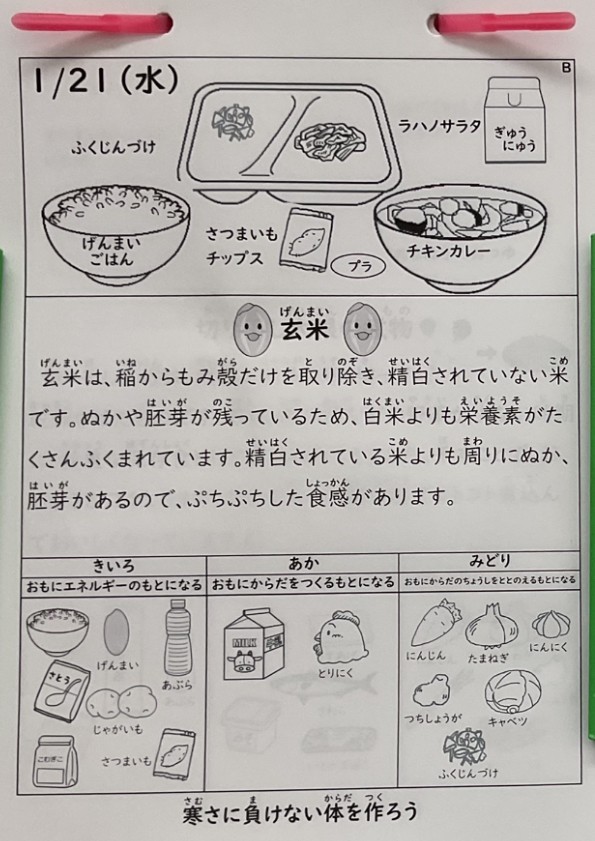 B
1/21(水)
ふくじんづけ
ラハノサラタ
ぎゅう
にゅう
げんまい
ごはん
さつまいも
チップス
プラ
チキンカレー
げんまい
玄米
げんまい いね がら と のぞ せいはく こめ
玄米は、稲からもみ殻だけを取り除き、精白されていない米
はいが のこ はくまい えいようそ
です。ぬかや胚芽が残っているため、白米よりも栄養素がた
せいはく こめ まわ
くさんふくまれています。精白されている米よりも周りにぬか、
はいが しょっかん
胚芽があるので、ぷちぷちした食感があります。
きいろ
おもにエネルギーのもとになる
げんまい
あぶら
さとう
じゃがいも
こむぎこ
さつまいも
あか
おもにからだをつくるもとになる
MILK
とりにく
みどり
おもにからだのちょうしをととのえるもとになる
にんじん
たまねぎ
にんにく
つちしょうが
キャベツ
ふくじんづけ
さむ ま からだ つく
寒さに負けない体を作ろう